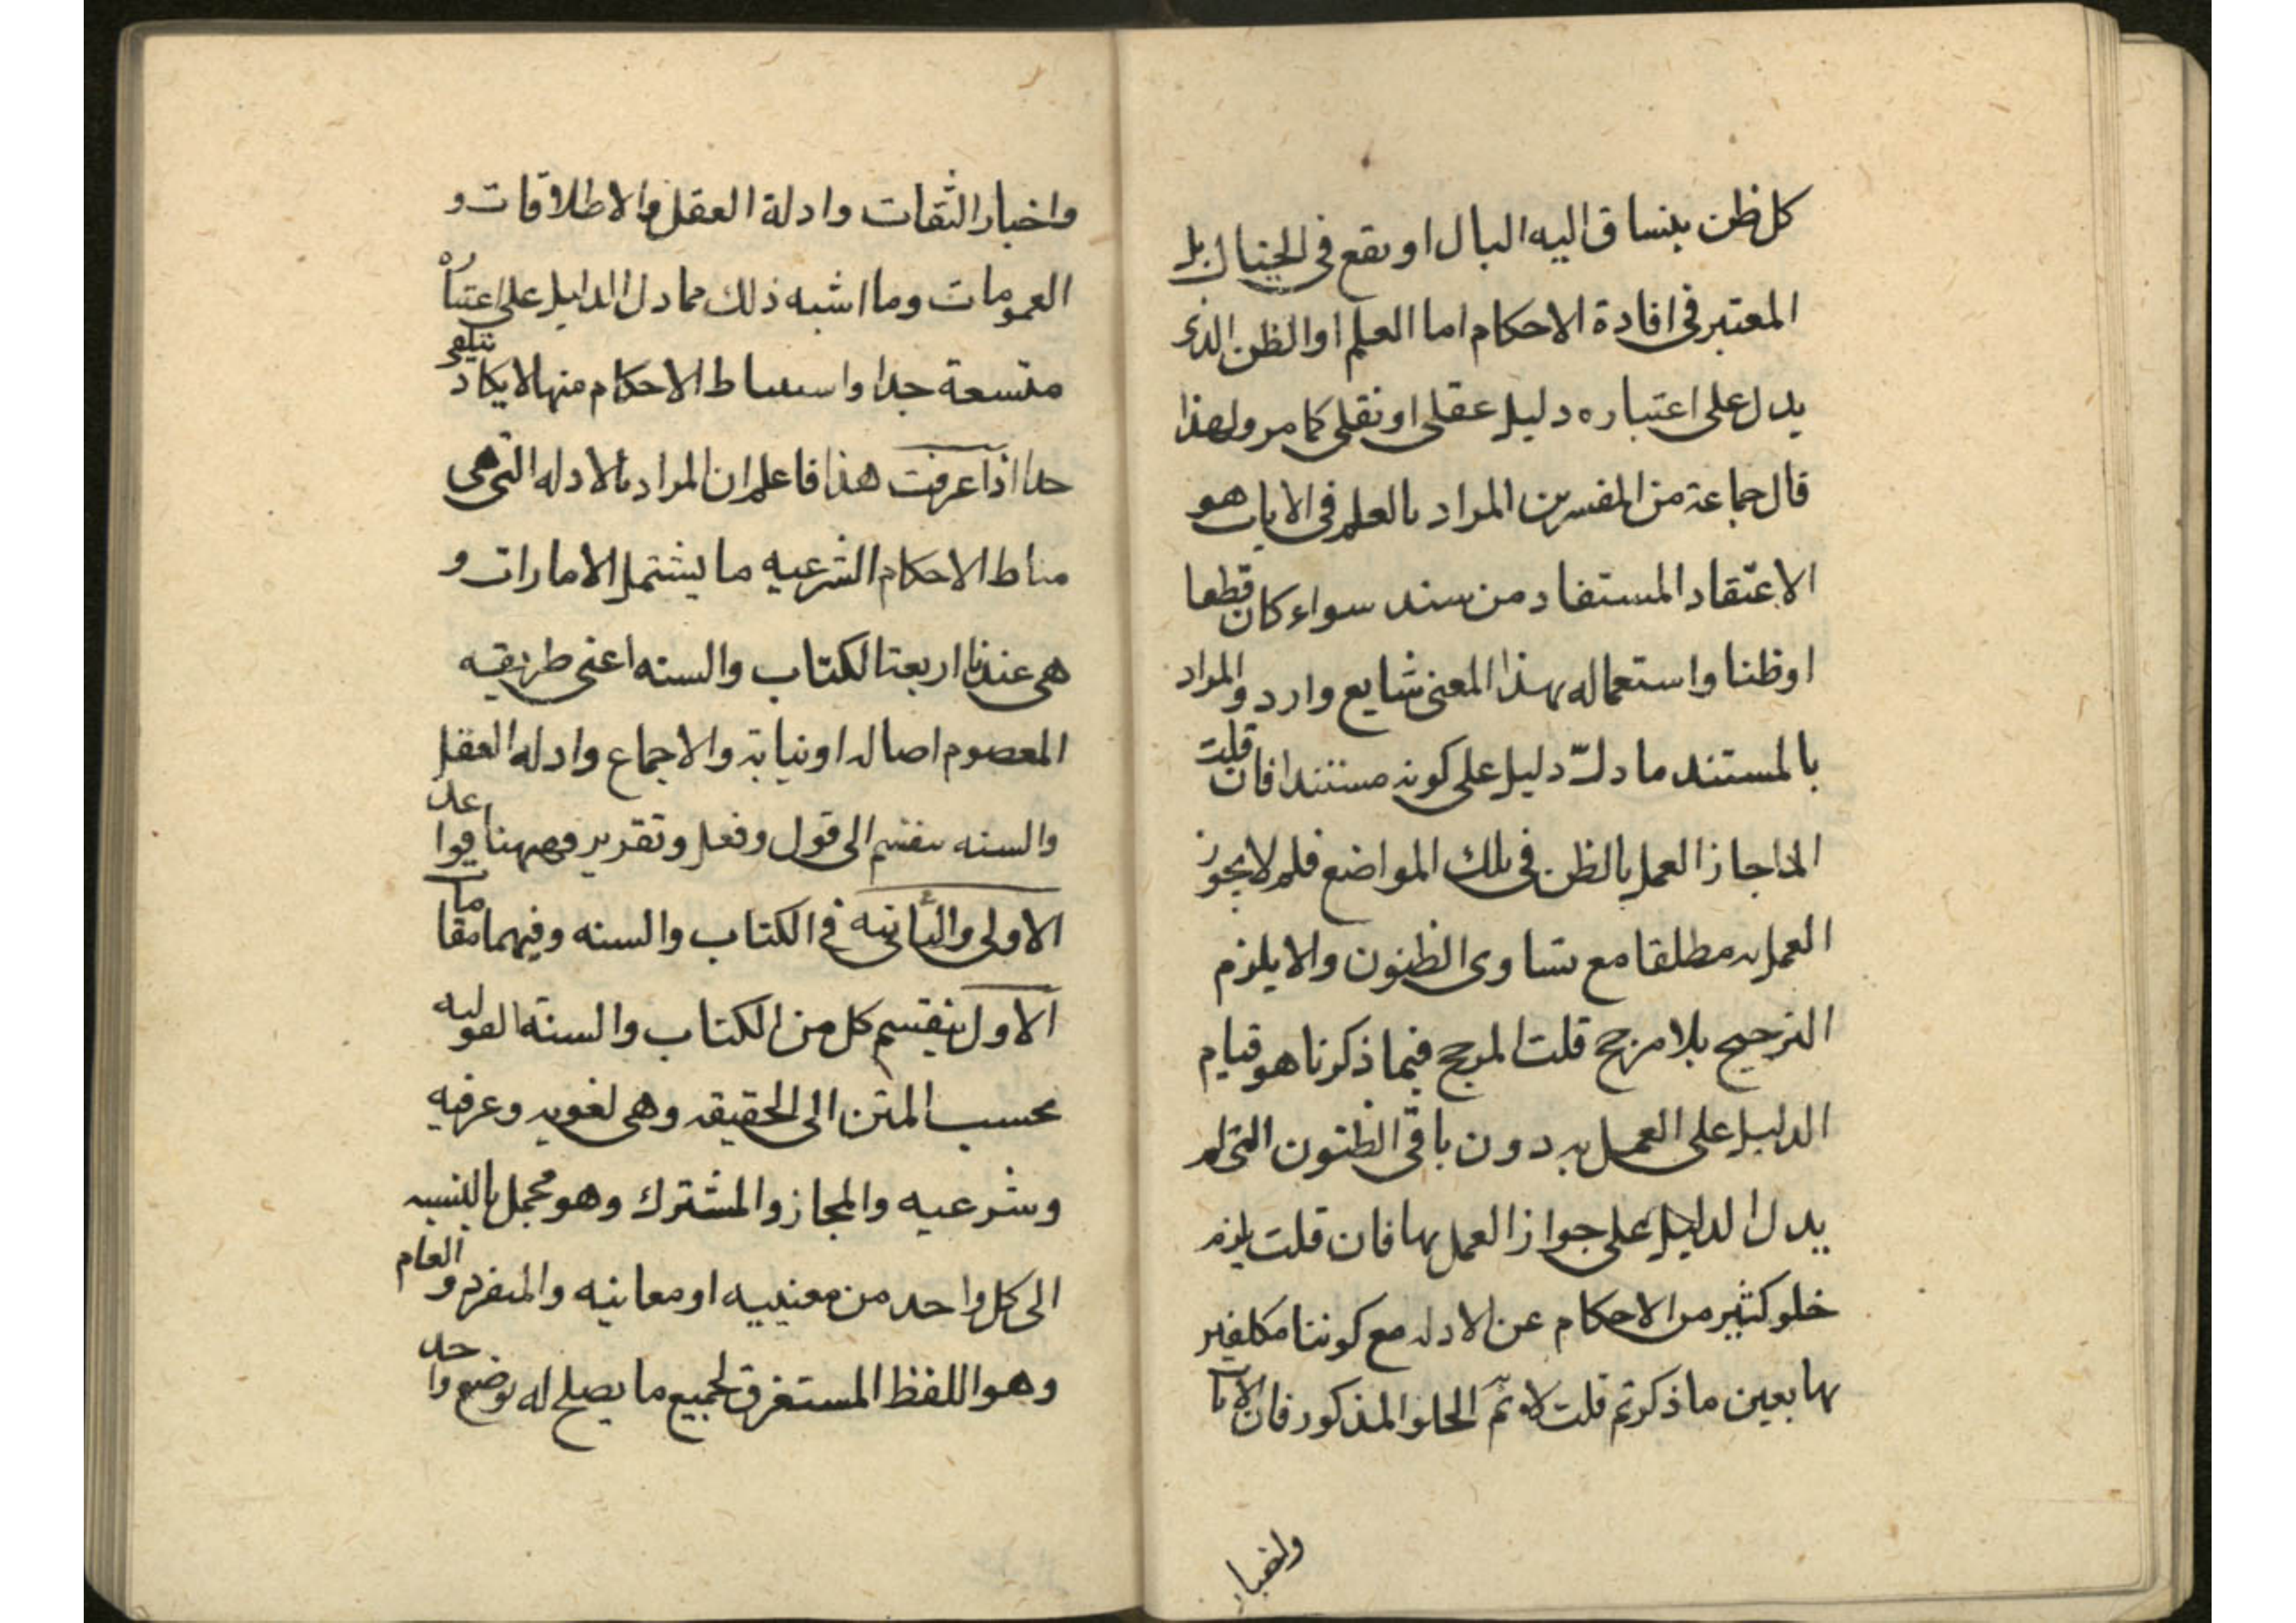 كل ظن ينساق اليه البال او يقع في الخيال بل
المعتبر في افادة الاحكام اما العلم او الظن الذي
يدل على اعتباره دليل عقلي او نقلي كما مر ولهذا
قال جماعة من المفسرين المراد بالعلم في الايات هو
الاعتقاد المستفاد من سند سواء كان قطعا
او ظنا واستعماله بهذا المعنى شايع وارد والمراد
بالمستند ما دلّ دليل على كونه مستندا فان قلت
اذا جاز العمل بالظن في تلك المواضع فلم لا يجوز
العمل به مطلقا مع تساوي الظنون والا يلزم
الترجيح بلا مرجح قلت المرجح فيما ذكرنا هو قيام
الدليل على العمل به دون باقي الظنون التي لم
يدل الدليل على جواز العمل بها فان قلت يلزم
خلو كثير من الاحكام عن الادله مع كوننا مكلفين
بها بعين ما ذكرتم قلت لا ثم الخلو المذكور فان الايات
واخبار
واخبار الثقات وادلة العقل والاطلاقات و
العمومات وما اشبه ذلك مما دل الدليل على اعتباره
متسعة جدا واستنباط الاحكام منها لا يكاد
حدا اذا عرفت هذا فاعلم ان المراد بالادله التي هي
مناط الاحكام الشرعيه ما يشتمل الامارات و
هي عندنا اربعة الكتاب والسنه اعني طريقيه
المعصوم اصاله او نيابة والاجماع وادله العقل
والسنه تنقسم الى قول وفعل وتقرير فههنا قواعد
الاولى والثانيه في الكتاب والسنه وفيهما مقامات
الاول ينقسم كل من الكتاب والسنة القوليه
بحسب المتن الى الحقيقه وهي لغويه وعرفيه
وشرعيه والمجاز والمشترك وهو مجمل بالنسبه
الى كل واحد من معنييه او معانيه والمنفرد والعام
وهو اللفظ المستغرق لجميع ما يصلح له بوضع واحد